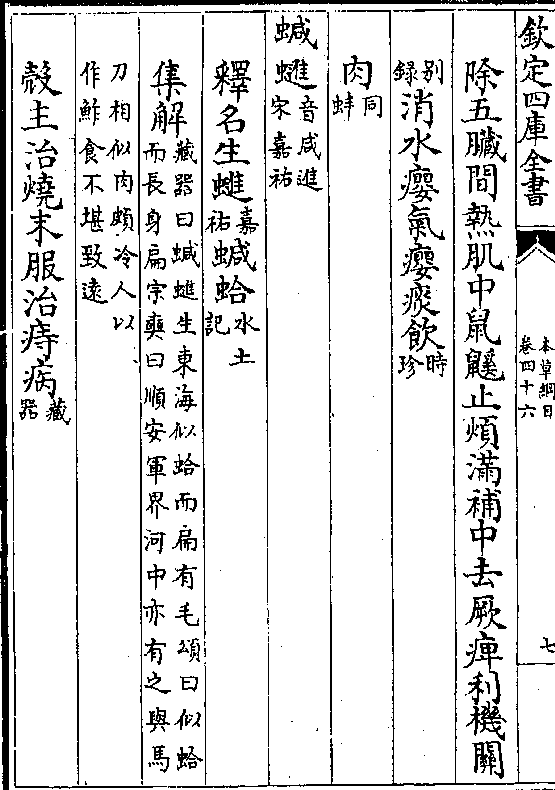 欽定四庫全書
本草綱目
卷四十六
七
除五臟間熱肌中鼠鼷止煩滿補中去厥痺利機關
别
録
消水癭氣癭痰飲
時
珍
肉
同
蚌
蝛𧕇
音咸進
宋嘉祐
釋名生𧕇
嘉
祐
蝛蛤
水土
記
集解
藏器曰蝛𧕇生東海似蛤而扁有毛頌曰似蛤
而長身扁宗奭曰順安軍界河中亦有之與馬
刀相似肉頗冷人以
作鮓食不堪致遠
殼主治燒末服治痔病
藏
器